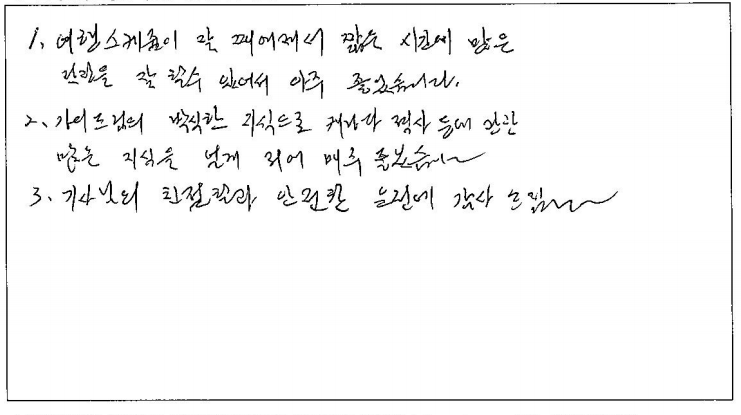 1. 여행스케줄이 잘 짜여져서 짧은 시간에 많은
관광을 잘 할수 있어서 아주 좋았습니다.
2. 가이드님의 박식한 지식으로 캐나다 역사 등에 관한
많은 지식을 넓게 되어 매우 좋았습
3. 기사님의 친절함과 안전한 운전에 감사 드림